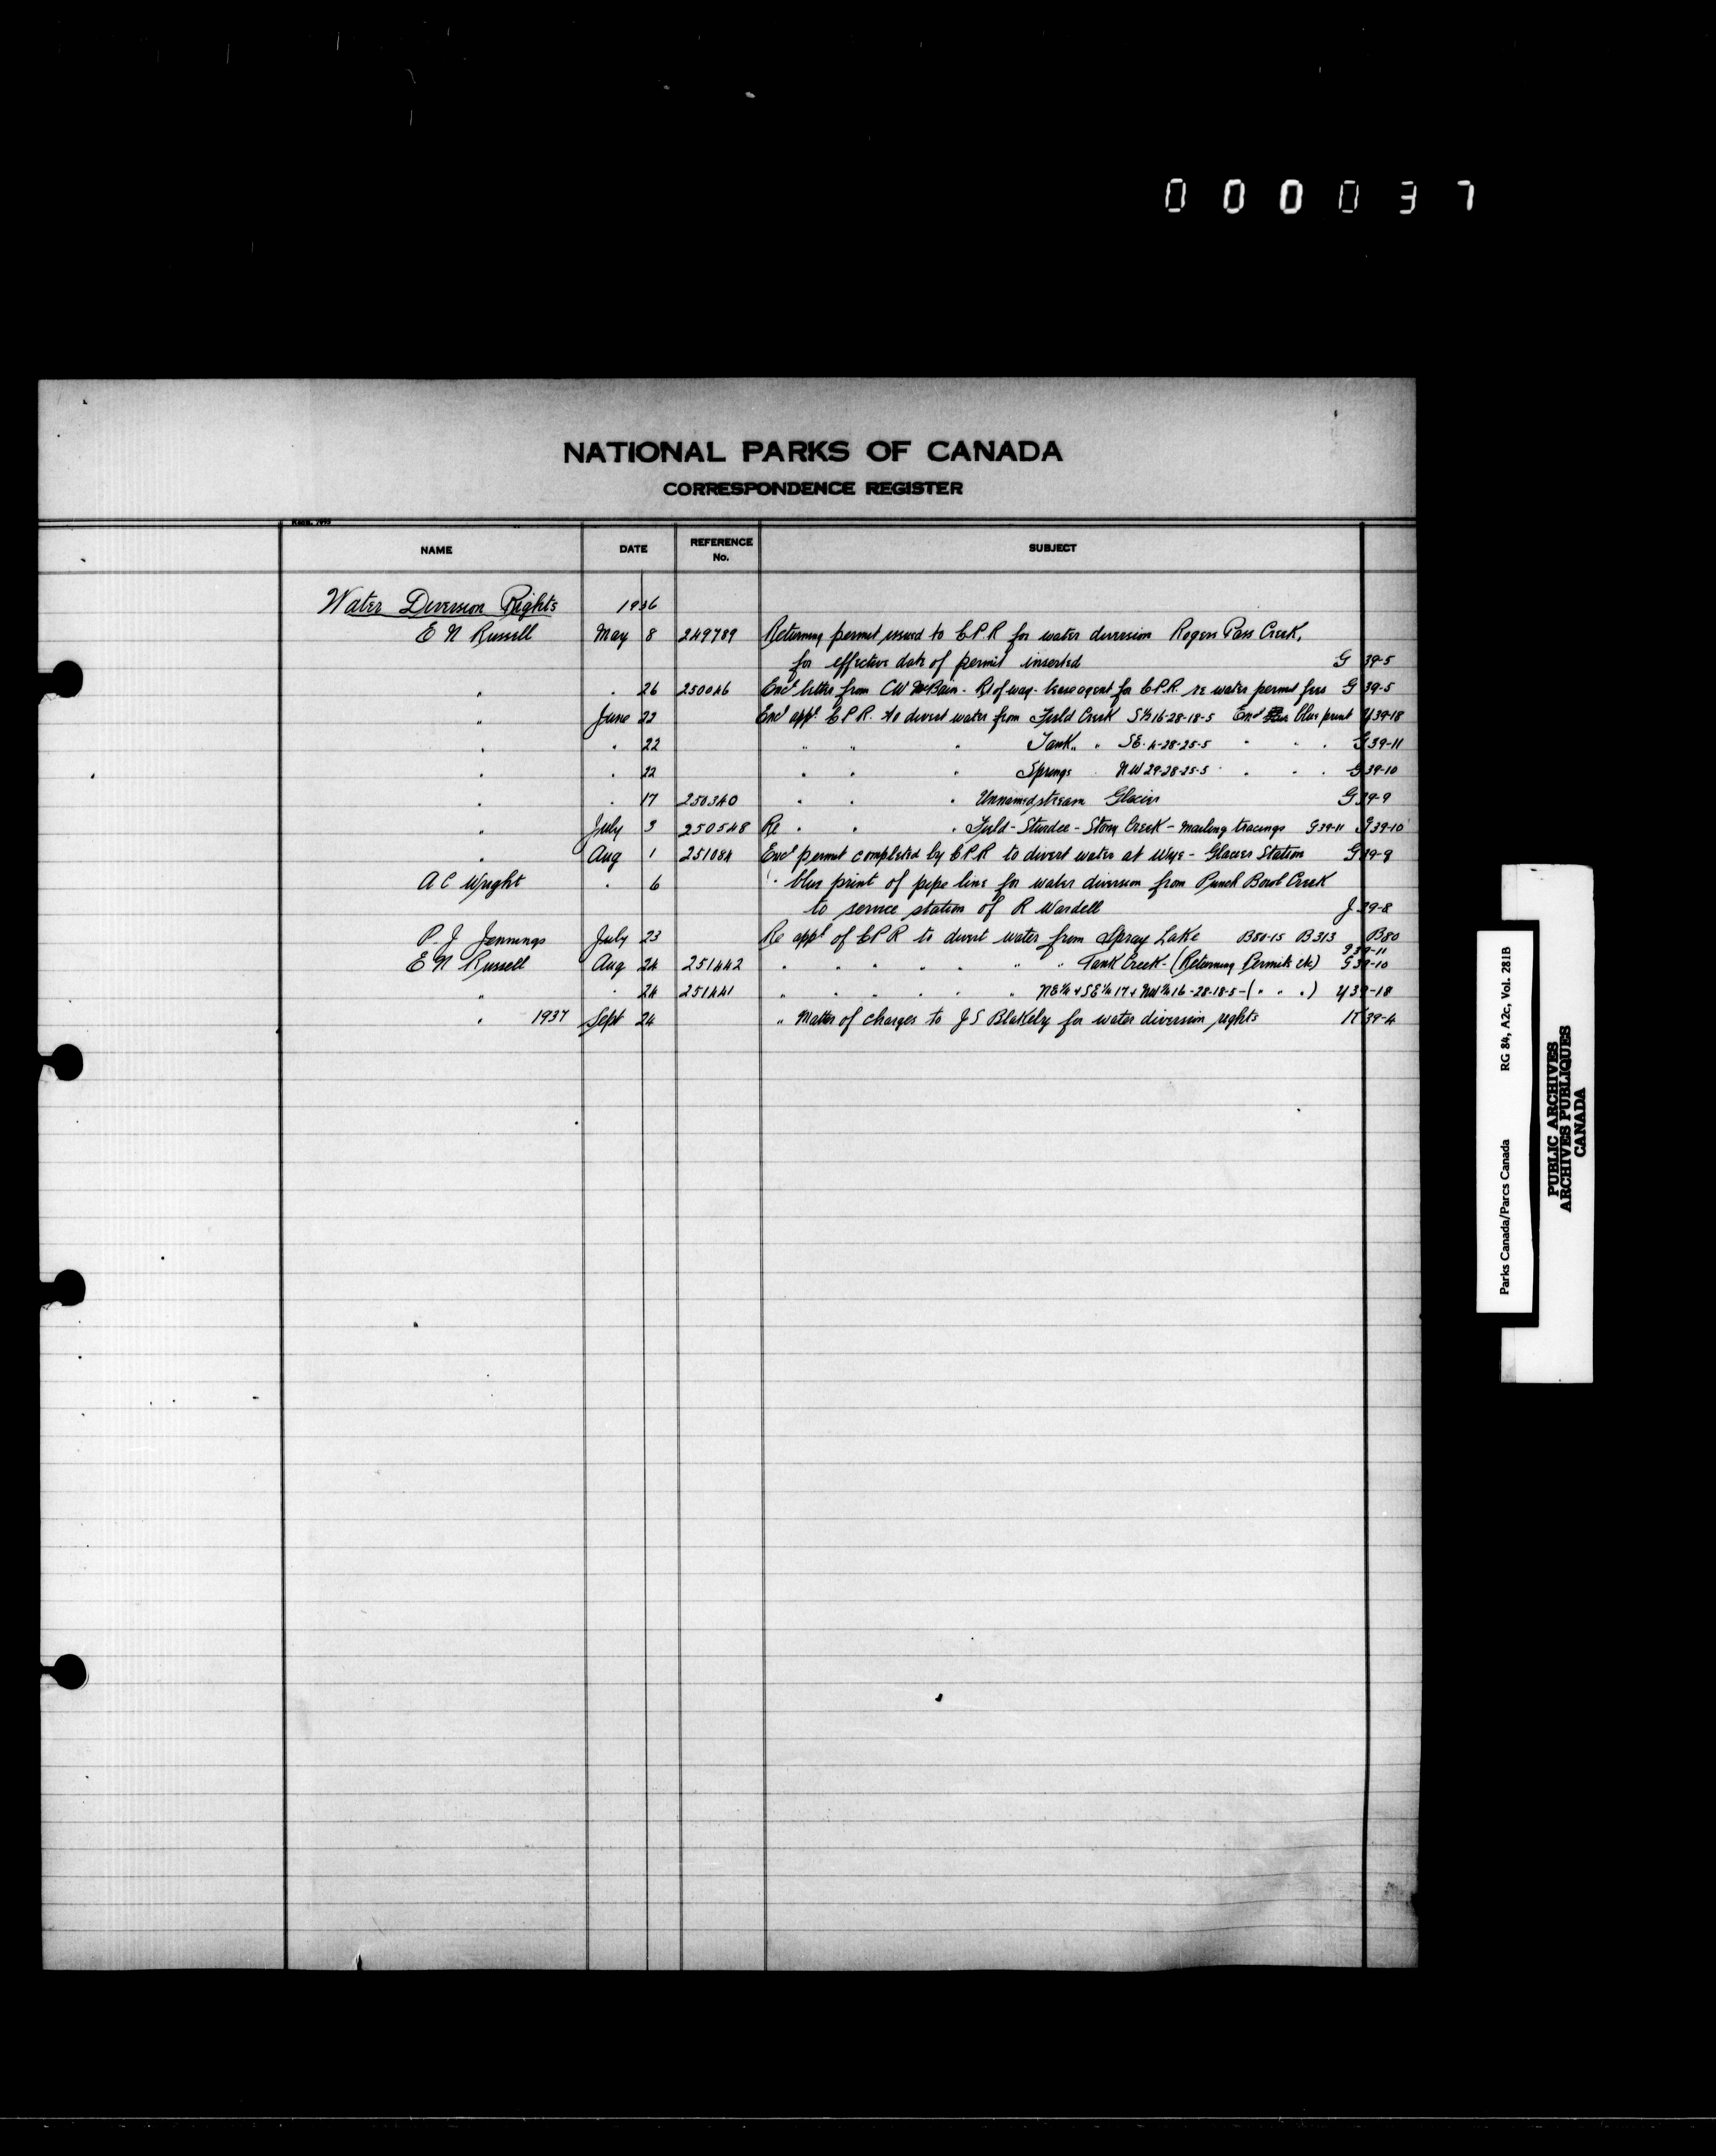 000037
NATIONAL PARKS OF CANADA
CORRESPONDENCE REGISTER
NAME DATE REFERENCE No. SUBJECT
Water Diversion Rights 1936
E N Russell May 8 249789 Returning permit issued to C.P.R for water diversion Rogers Pass Creek,
for effective date of permit inserted G 39-5
" " 26 250046 Encl letter from CW McBain - Rt of way - lease agent for C.P.R. re water permit fees G 39-5
" June 22 Encl appl C P R. to divert water from Field Creek S½ 16-28-18-5 Encl blue print Y 39-18
" " 22 " " " Tank " SE. 4-28-25-5 " " " G 39-11
" " 22 " " " Springs NW 29-28-25-5 " " " G 39-10
" " 17 250340 " " " Unnamed stream Glacier G 39-9
" July 3 250548 Re " " " Field - Sturdee - Stony Creek - mailing tracings G 39-11 G 39-10
" Aug 1 251084 Encl permit completed by C P R to divert water at Wye - Glacier Station G 39-9
A C Wright " 6 " blue print of pipe line for water diversion from Punch Bowl Creek
to service station of R Wardell J 39-8
P. J Jennings July 23 Re appl of C P R to divert water from Spray Lake B80-15 B313 B80
G 39-11
E N Russell Aug 24 251442 " " " " " " " Tank Creek - (Returning Permits etc) G 39-10
" " 24 251441 " " " " " " NE¼ + SE¼ 17 + NW¼ 16-28-18-5 - ( " " " ) Y 39-18
" 1937 Sept 24 " Matter of charges to J S Blakely for water diversion rights K 39-4
Parks Canada/Parcs Canada RG 84, A2c, Vol. 281B
PUBLIC ARCHIVES
ARCHIVES PUBLIQUES
CANADA